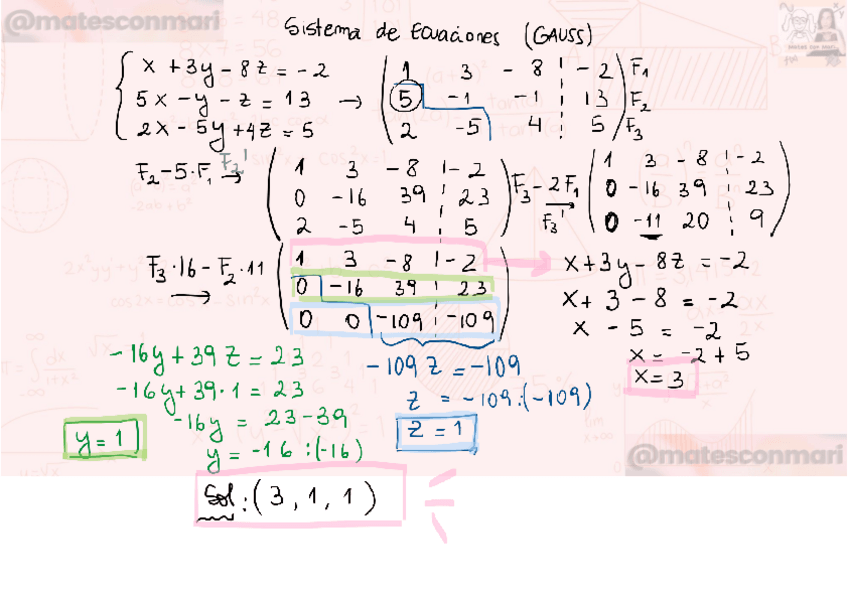 @matesconmari
Sistema de Ecuaciones (GAUSS)
x + 3y - 8z = -2
5x - y - z = 13 →
2x - 5y + 4z = 5
1 3 -8 -2 F1
5 -1 -1 13 F2
2 -5 4 5 F3
F2 - 5·F1 → F2'
1 3 -8 -2
0 -16 39 23
2 -5 4 5
F3 - 2F1 → F3'
1 3 -8 -2
0 -16 39 23
0 -11 20 9
F3·16 - F2·11 →
1 3 -8 -2
0 -16 39 23
0 0 -109 -109
x + 3y - 8z = -2
x + 3 - 8 = -2
x - 5 = -2
x = -2 + 5
x = 3
-16y + 39z = 23
-16y + 39·1 = 23
-16y = 23 - 39
y = -16 : (-16)
y = 1
-109z = -109
z = -109 : (-109)
z = 1
@matesconmari
Sol: (3, 1, 1)